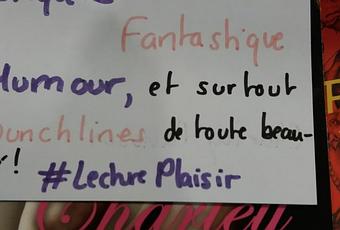 Fantastique
Humour, et surtout
punchlines de toute beau-
!
#Lecture Plaisir
Charley